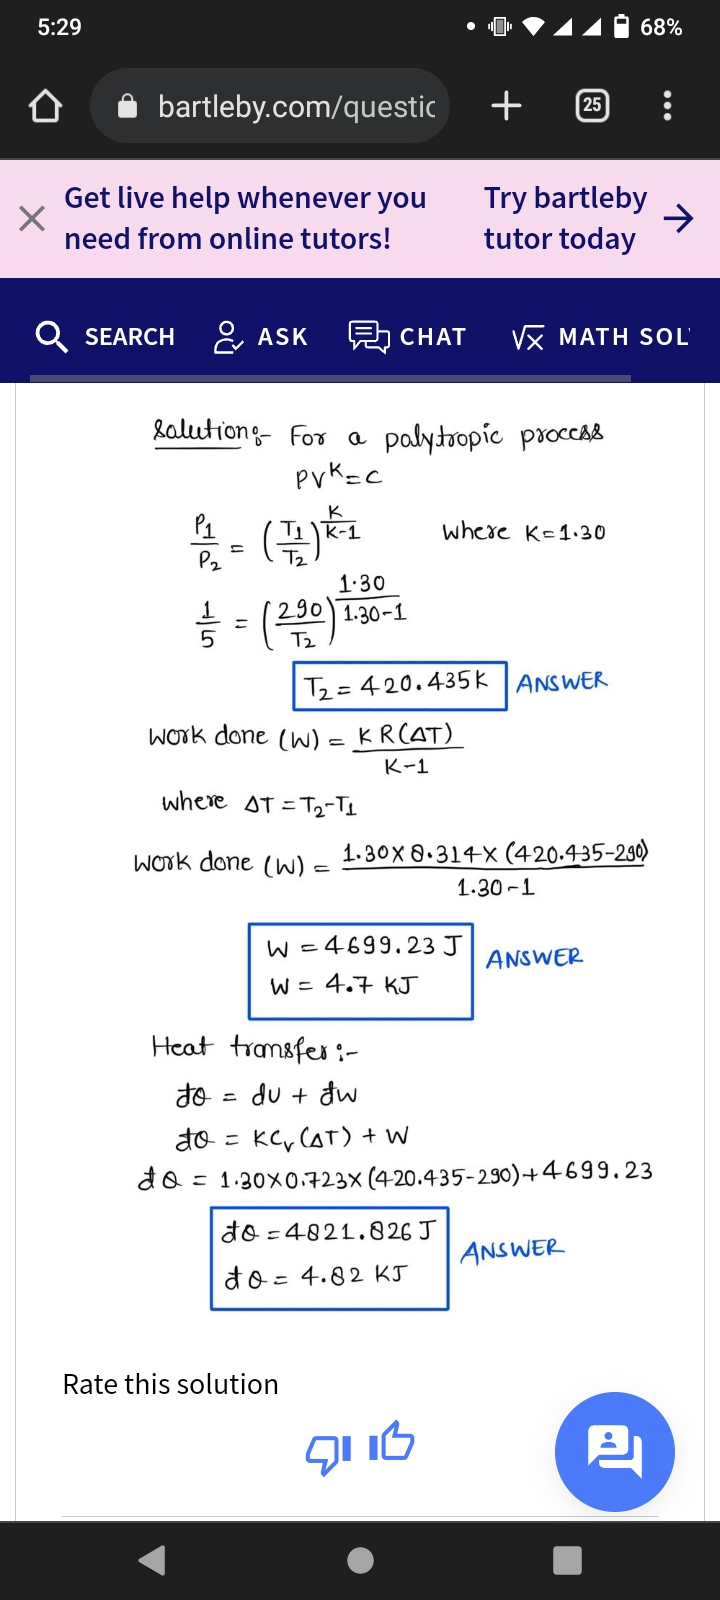 5:29
68%
bartleby.com/questic
25
Get live help whenever you
need from online tutors!
Try bartleby
tutor today
SEARCH
ASK
CHAT
√x MATH SOL
Solution:- For a polytropic process
PV^K = C
P1/P2 = (T1/T2)^(K/K-1) where K=1.30
1/5 = (290/T2)^(1.30/1.30-1)
T2 = 420.435K ANSWER
Work done (W) = KR(ΔT)/K-1
where ΔT = T2-T1
Work done (W) = 1.30×8.314×(420.435-290)/1.30-1
W = 4699.23 J
W = 4.7 KJ
ANSWER
Heat transfer:-
đQ = du + đw
đQ = KCv(ΔT) + W
đQ = 1.30×0.723×(420.435-290)+4699.23
đQ = 4821.826 J
đQ = 4.82 KJ
ANSWER
Rate this solution